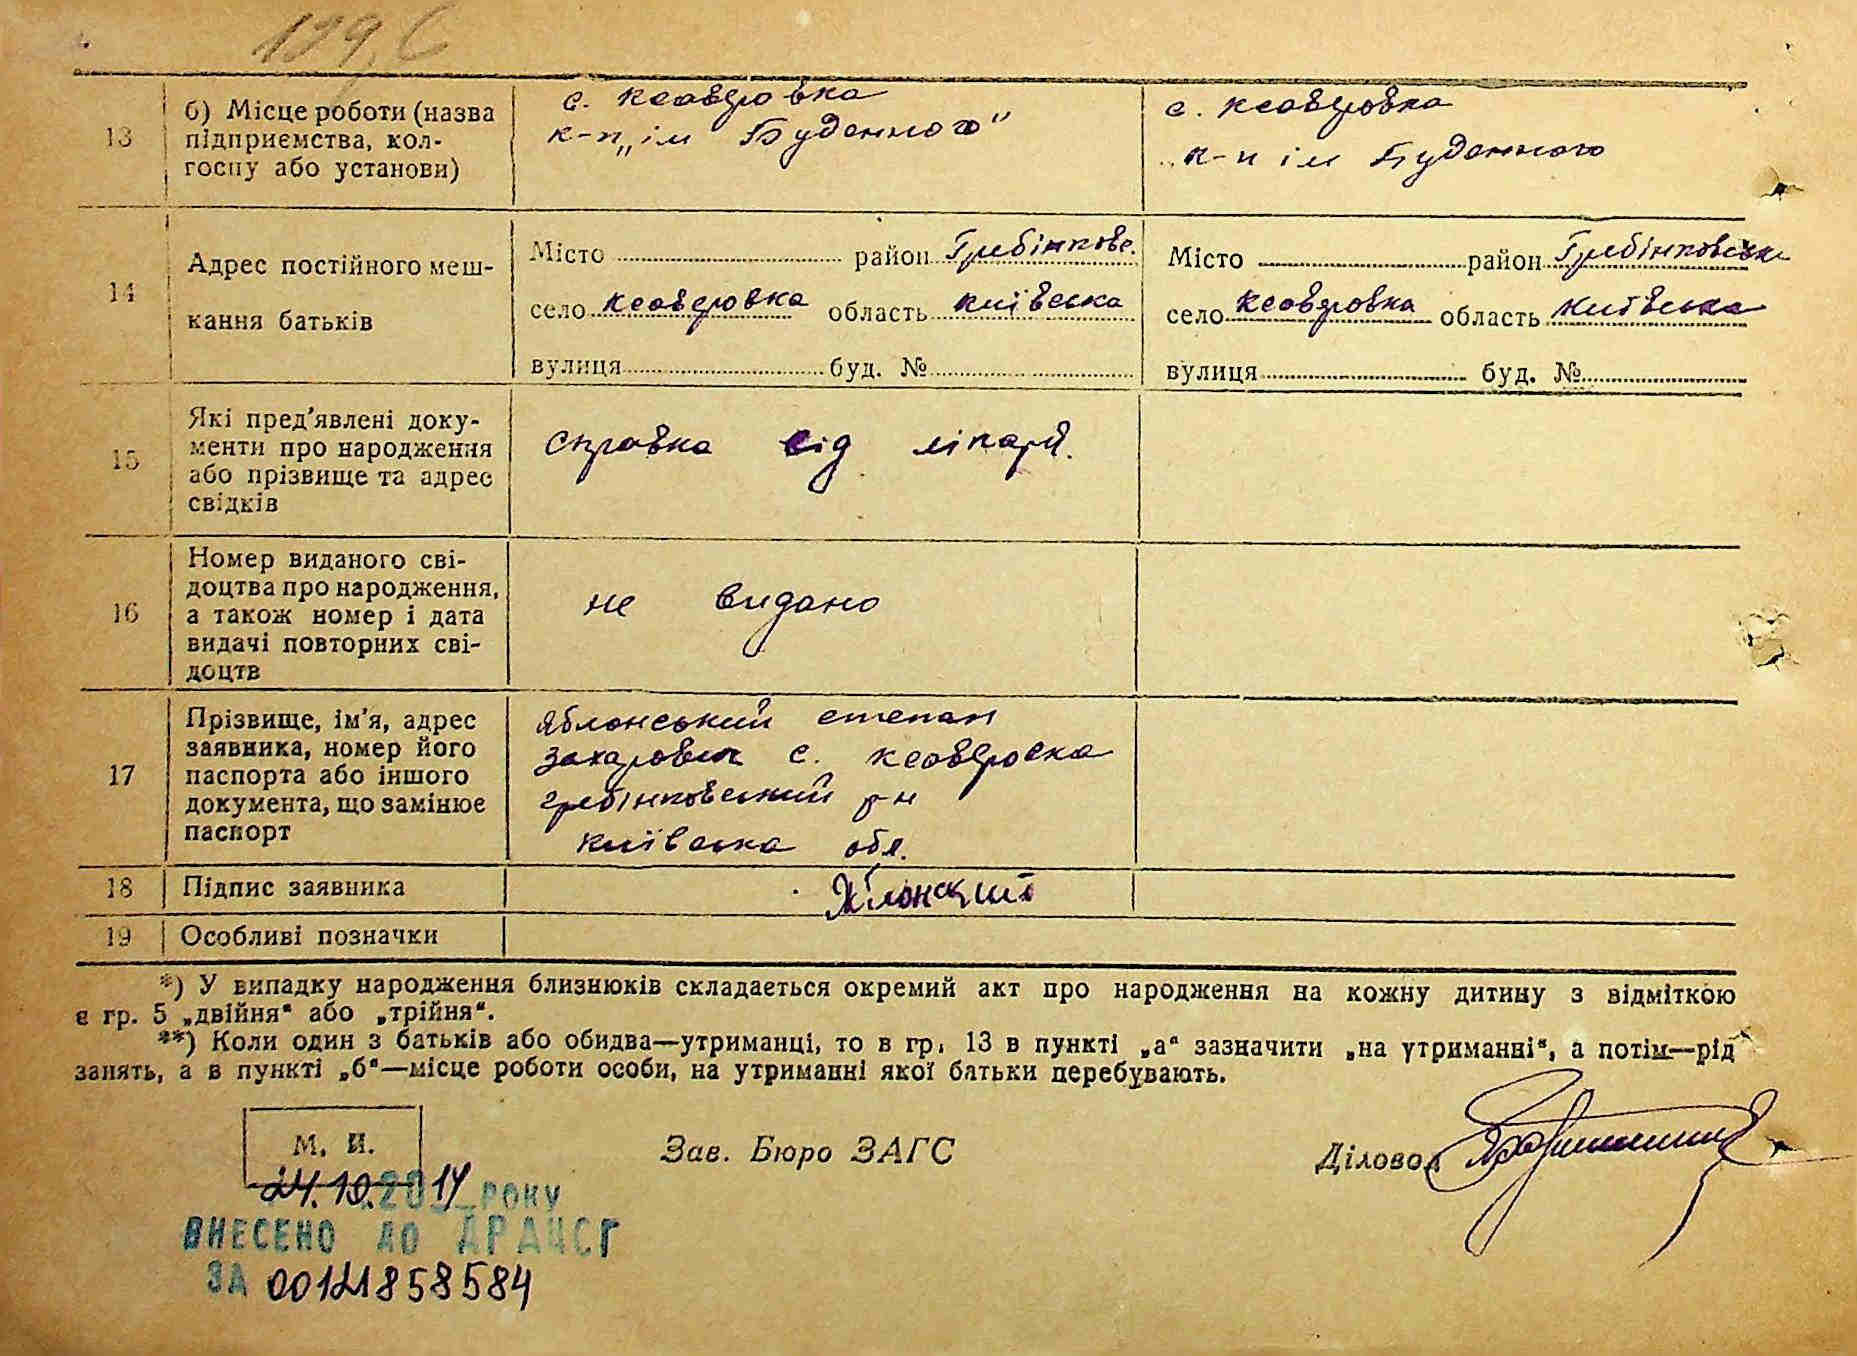 199, С
13
б) Місце роботи (назва
підприємства, кол-
госпу або установи)
с. Ксаверовка
к-п „ім Буденного"
с. Ксаверовка
к-п ім Буденного
14
Адрес постійного меш-
кання батьків
Місто район Гребінковс.
село Ксаверовка область Київська
вулиця буд. №
Місто район Гребінковськ
село Ксаверовка область Київська
вулиця буд. №
15
Які пред'явлені доку-
менти про народження
або прізвище та адрес
свідків
справка від лікаря.
16
Номер виданого сві-
доцтва про народження,
а також номер і дата
видачі повторних сві-
доцтв
не видано
17
Прізвище, ім'я, адрес
заявника, номер його
паспорта або іншого
документа, що замінює
паспорт
Яблонський степан
Захарович с. Ксаверовка
гребінковський р-н
Київська обл.
18
Підпис заявника
Яблонский
19
Особливі позначки
*) У випадку народження близнюків складається окремий акт про народження на кожну дитину з відміткою
є гр. 5 „двійня" або „трійня".
**) Коли один з батьків або обидва—утриманці, то в гр. 13 в пункті „а" зазначити „на утриманні", а потім—рід
занять, а в пункті „б"—місце роботи особи, на утриманні якої батьки перебувають.
М. П.
Зав. Бюро ЗАГС
Діловод
24.10.2014 РОКУ
ВНЕСЕНО ДО ДРАЦСГ
ЗА 00121858584